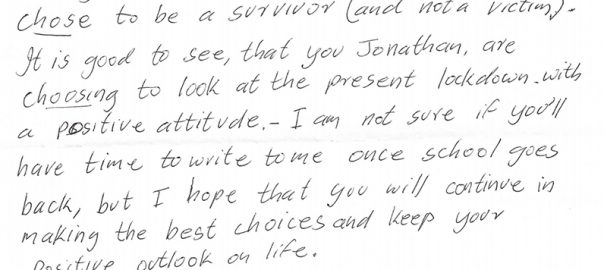 chose to be a survivor (and not a victim).
It is good to see, that you Jonathan, are
choosing to look at the present lockdown with
a positive attitude. - I am not sure if you'll
have time to write to me once school goes
back, but I hope that you will continue in
making the best choices and keep your
positive outlook on life.